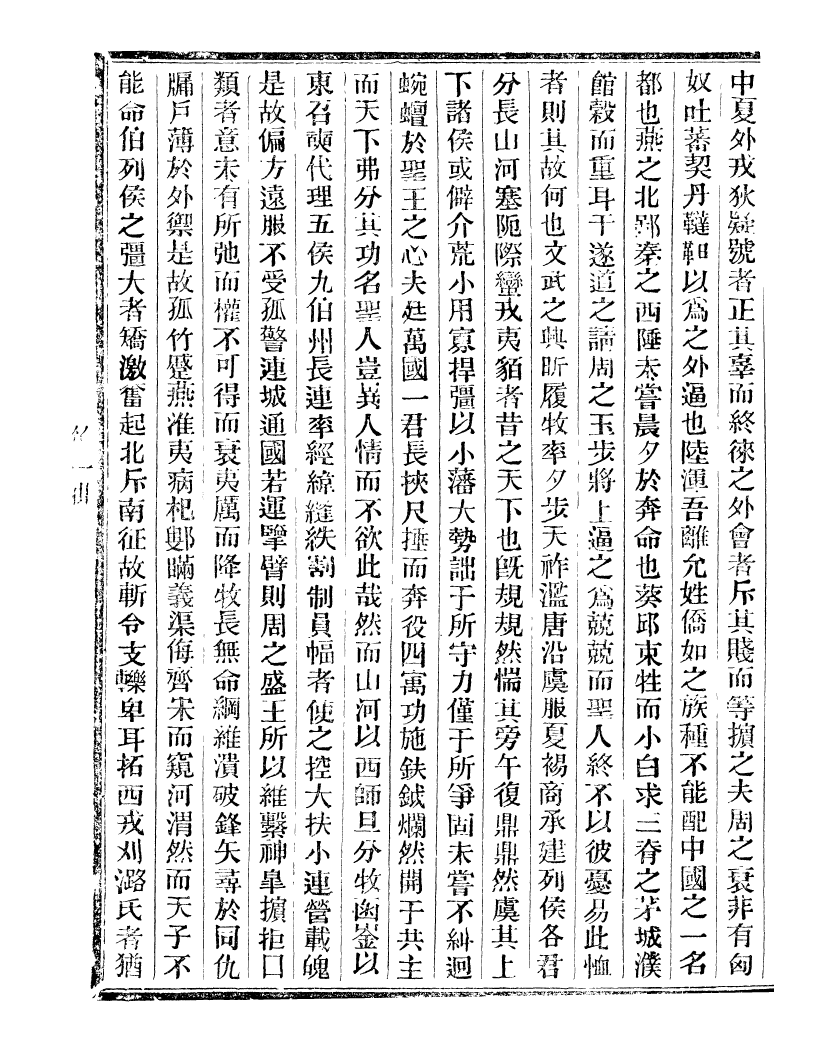 中夏外戎狄疑號者正其辜而終徠之外會者斥其賤而等擯之夫周之衰非有匈
奴吐蕃契丹韃靼以爲之外逼也陸渾吾離允姓僑如之族種不能配中國之一名
都也燕之北鄙秦之西陲未嘗晨夕於奔命也葵邱束牲而小白求三脊之茅城濮
館穀而重耳干遂道之請周之玉步將上逼之爲兢兢而聖人終不以彼憂易此恤
者則其故何也文武之興昕履牧率夕步天祚濫唐沿虞服夏裼商承建列侯各君
分長山河塞阨際蠻戎夷貊者昔之天下也旣規規然惴其旁午復鼎鼎然虞其上
下諸侯或僻介荒小用寡捍彊以小藩大勢詘于所守力僅于所爭固未嘗不糾迴
蜿蟺於聖王之心夫廷萬國一君長挾尺捶而奔役四㝢功施鈇鉞爛然開于共主
而天下弗分其功名聖人豈異人情而不欲此哉然而山河以西師旦分牧函崟以
東召奭代理五侯九伯州長連率經綜縫紩割制員幅者使之控大扶小連營載魄
是故偏方遠服不受孤警連城通國若運擘臂則周之盛王所以維繫神皐擯拒口
類者意未有所弛而權不可得而衰夷厲而降牧長無命綱維潰破鋒矢尋於同仇
牖戶薄於外禦是故孤竹蹙燕淮夷病杞鄋瞞義渠侮齊宋而窺河渭然而天子不
能命伯列侯之彊大者矯激奮起北斥南征故斬令支轢卑耳拓西戎刈潞氏者猶